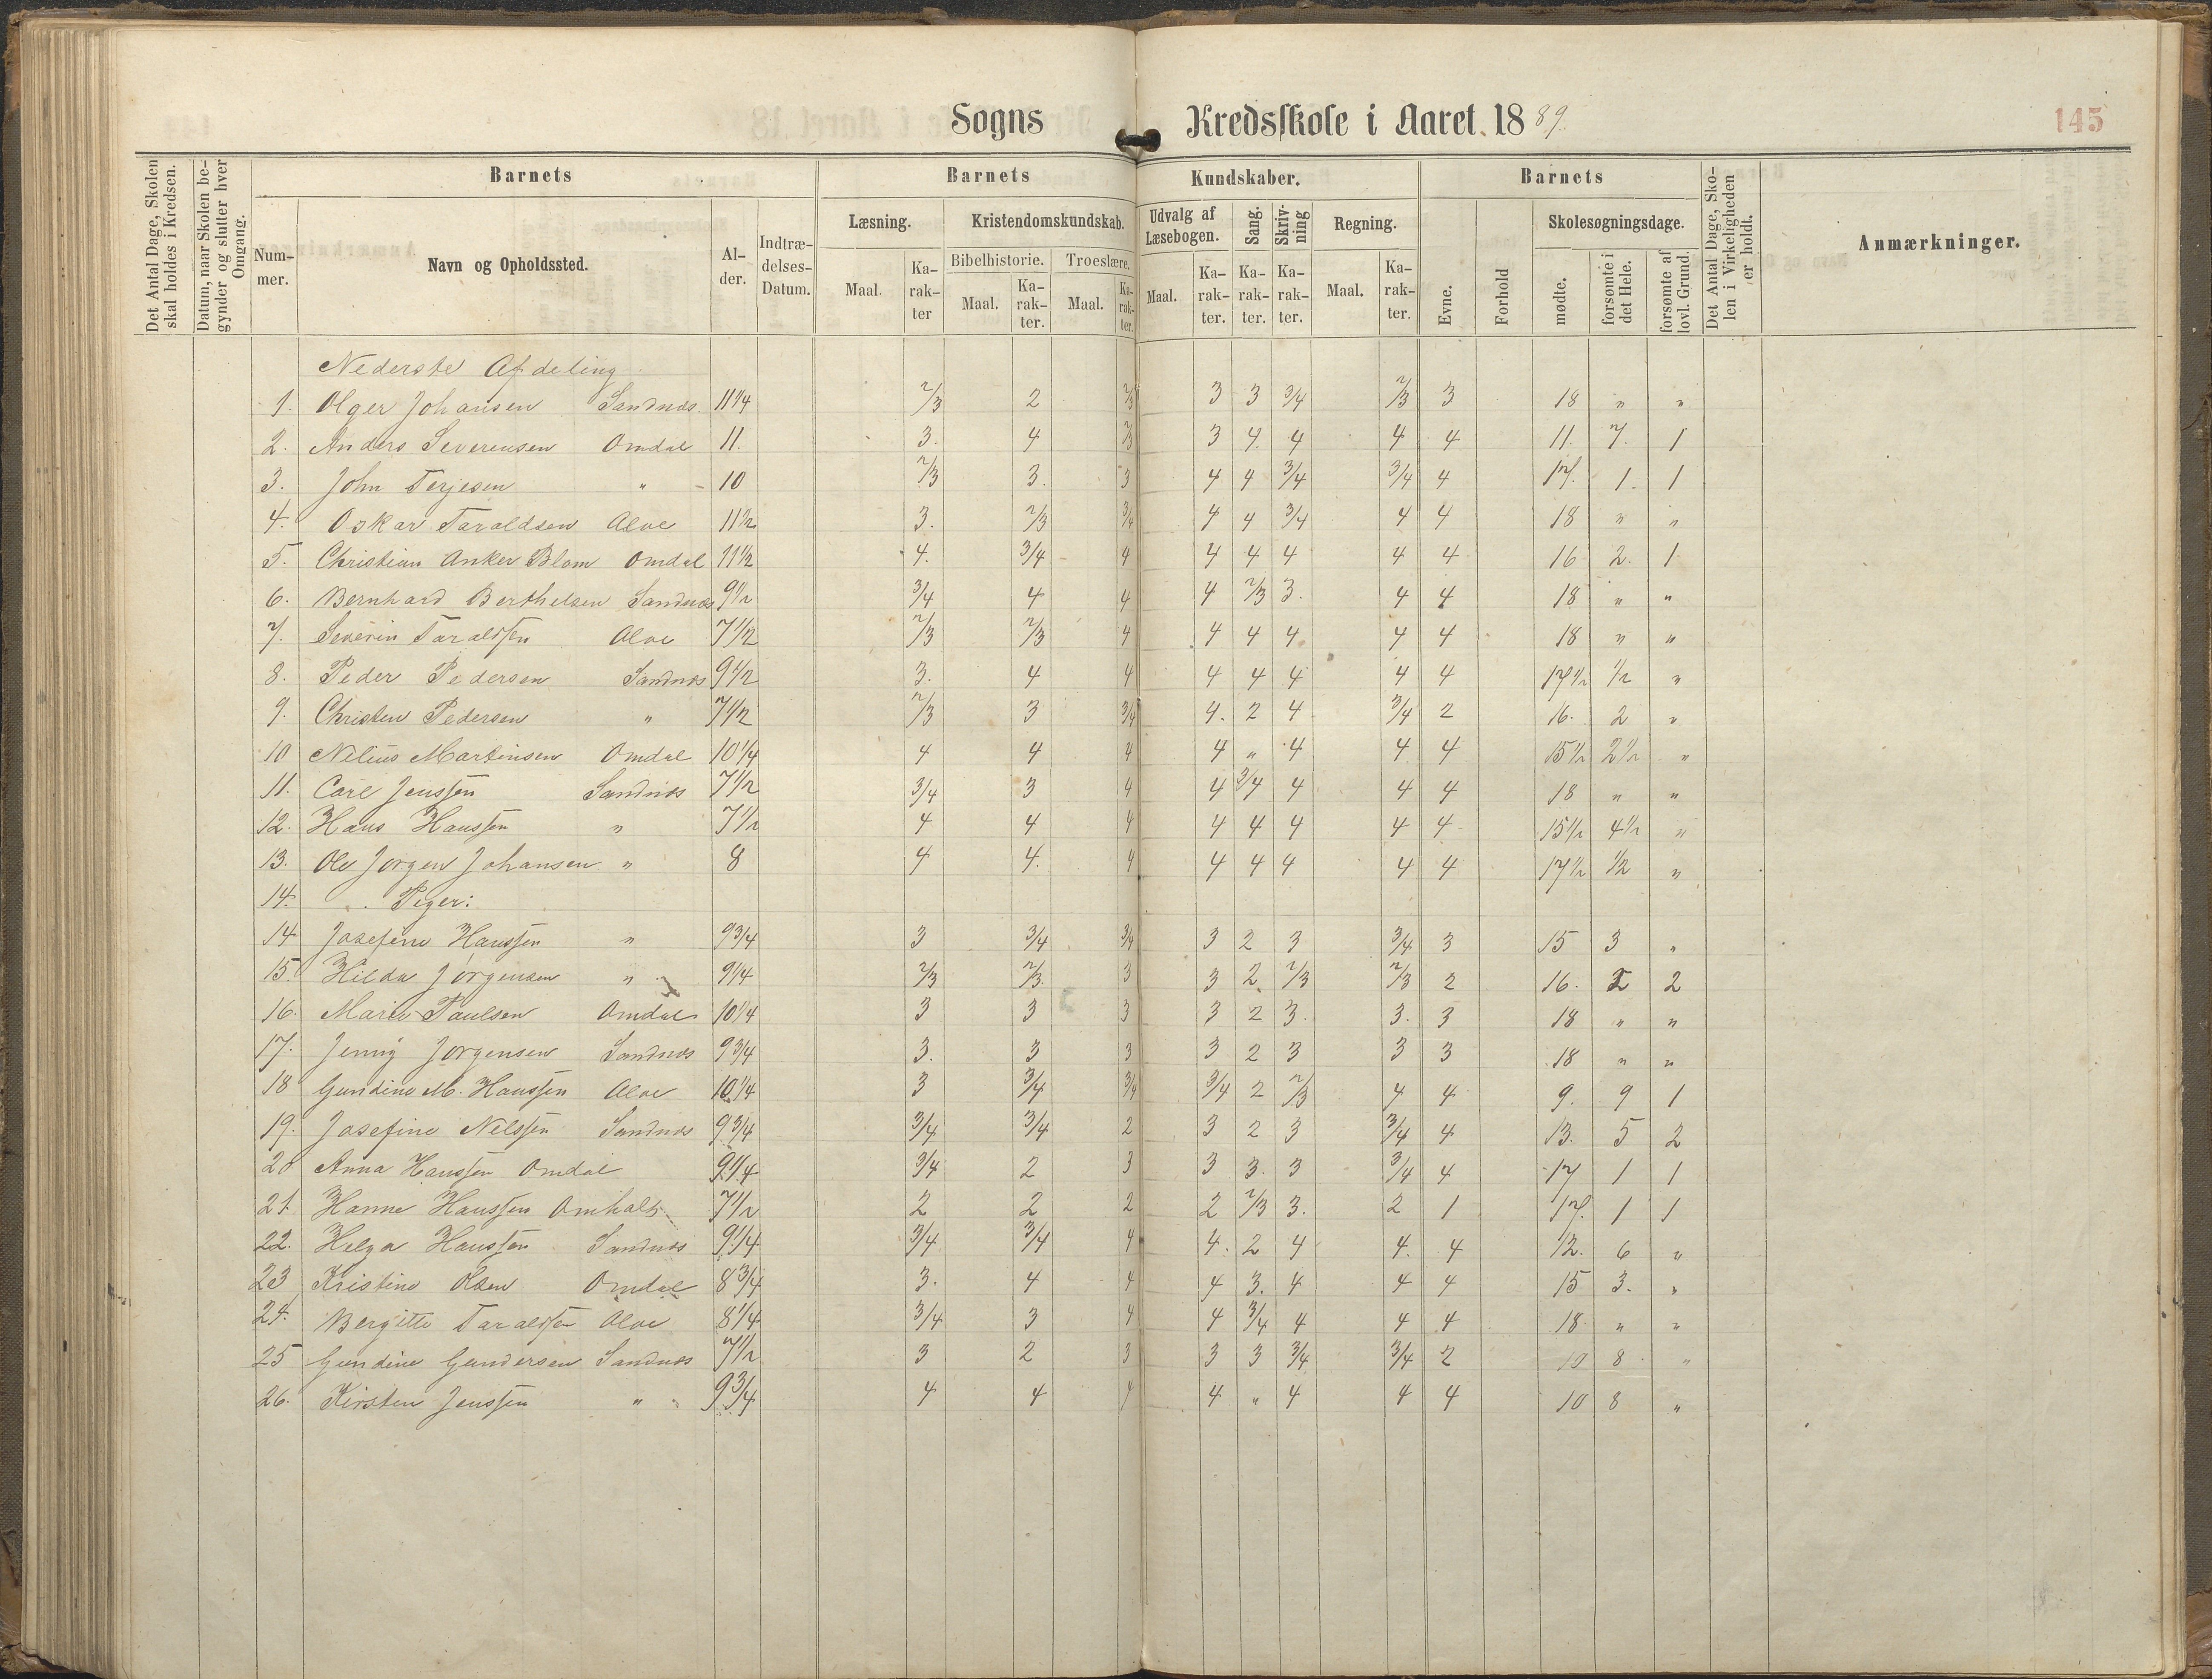 Sogns Kredsskole i Aaret 1889. 145
Det Antal Dage, Skolen skal holdes i Kredsen.
Datum, naar Skolen begynder og slutter hver Omgang.
Barnets Barnets Kundskaber. Barnets
Det Antal Dage, Skolen i Virkeligheden er holdt.
Anmærkninger.
Nummer. Navn og Opholdssted. Alder. Indtrædelses-Datum.
Læsning. Kristendomskundskab. Udvalg af Læsebogen. Sang. Skrivning Regning. Evne. Forhold Skolesøgningsdage.
Bibelhistorie. Troeslære. mødte. forsømte i det Hele. forsømte af lovl. Grund.
Maal. Karakter Maal. Karakter. Maal. Karakter. Maal. Karakter. Karakter. Karakter. Maal. Karakter.
Nederste Afdeling
1. Olger Johansen Sandnæs. 11 1/4 2/3 2 2/3 3 3 3/4 2/3 3 18 " "
2. Anders Severensen Omdal 11. 3. 4 2/3 3 4. 4 4 4 11. 7. 1
3. John Terjesen " 10 2/3 3. 3 4 4 3/4 3/4 4 17. 1. 1
4. Oskar Taraldsen Alve 11 1/2 3. 2/3 3/4 4 4 3/4 4 4 18 " "
5. Christian Anker Blom Omdal 11 1/2 4. 3/4 4 4 4 4 4 4 16 2. 1
6. Bernhard Berthelsen Sandnæs 9 1/2 3/4 4 4 4 2/3 3. 4 4 18 " "
7. Severin Taraldsen Alve 7 1/2 2/3 2/3 4 4 4 4 4 4 18 " "
8. Peder Pedersen Sandnæs 9 1/2 3. 4 4 4 4 4 4 4 17 1/2 1/2 "
9. Christen Pedersen " 7 1/2 2/3 3 3/4 4. 2 4 3/4 2 16. 2 "
10 Nilius Martinsen Omdal 10 1/4 4 4 4 4 " 4 4 4 15 1/2 2 1/2 "
11. Carl Jenssen Sandnæs 7 1/2 3/4 3 4 4 3/4 4 4 4 18 " "
12. Hans Hanssen " 7 1/2 4 4 4 4 4 4 4 4 15 1/2 4 1/2 "
13. Ole Jørgen Johansen " 8 4 4. 4 4 4 4 4 4 17 1/2 1/2 "
14. Piger:
14 Josefine Hanssen " 9 3/4 3 3/4 3/4 3 2 3 3/4 3 15 3 "
15. Hilda Jørgensen " 9 1/4 2/3 2/3 3 3 2. 2/3 2/3 2 16. 2 2
16. Marie Paulsen Omdal 10 1/4 3 3 3 3 2 3. 3. 3 18 " "
17. Jenny Jørgensen Sandnæs 9 3/4 3. 3 3 3 2 3 3 3 18 " "
18 Gundine M. Hanssen Alve 10 1/4 3 3/4 3/4 3/4 2 2/3 4 4 9. 9 1
19. Josefine Nilssen Sandnæs 9 3/4 3/4 3/4 2 3 2 3 3/4 4 13. 5 2
20 Anna Hanssen Omdal 9 1/4 3/4 2 3 3 3. 3 3/4 4 17 1 1
21. Hanne Hanssen Omholt 7 1/2 2 2 2 2 2/3 3. 2 1 17. 1 1
22. Helga Hanssen Sandnæs 9 1/4 3/4 3/4 4 4. 2 4 4. 4 12. 6 "
23 Kristine Olsen Omdal 8 3/4 3. 4 4 4 3. 4 4 4 15 3. "
24. Bergitte Taraldsen Alve 8 1/4 3/4 3 4 4 3/4 4 4 4 18 " "
25 Gundine Gundersen Sandnæs 7 1/2 3 2 3 3 3 3/4 3/4 2 10 8 "
26. Kirsten Jenssen " 9 3/4 4 4 4 4 " 4 4 4 10 8 "